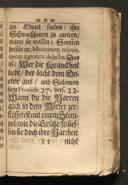 im Quart finden / ihre
Schwachheit zu curiren /
wann sie wollen: Sonsten
heisset es: Medicinam respuit,
quem ægritudo delectat. Das
ist: Wer die Kranckheit
liebt / der lacht dem Do-
ctor aus / und Salomon
sagt Proverb. 27. vers. 22.
Wann du die Narren
auch in dem Mörser zer-
stossest mit einem Stem-
pel / wie die Grütze / so lies-
sen sie doch ihre Narrheit
nicht